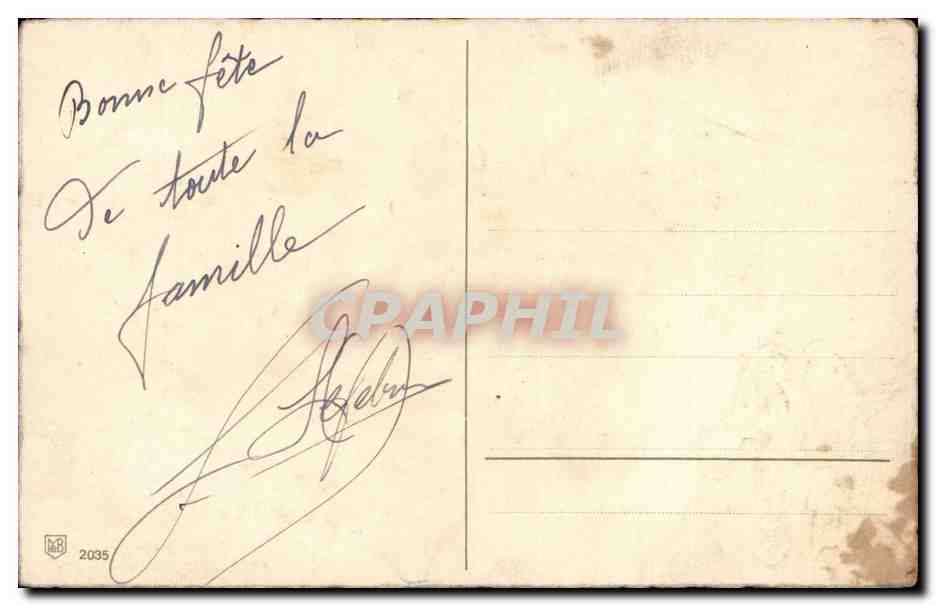 Bonne fête
de toute la
famille
CPARPHIL
Lefebvre
2035